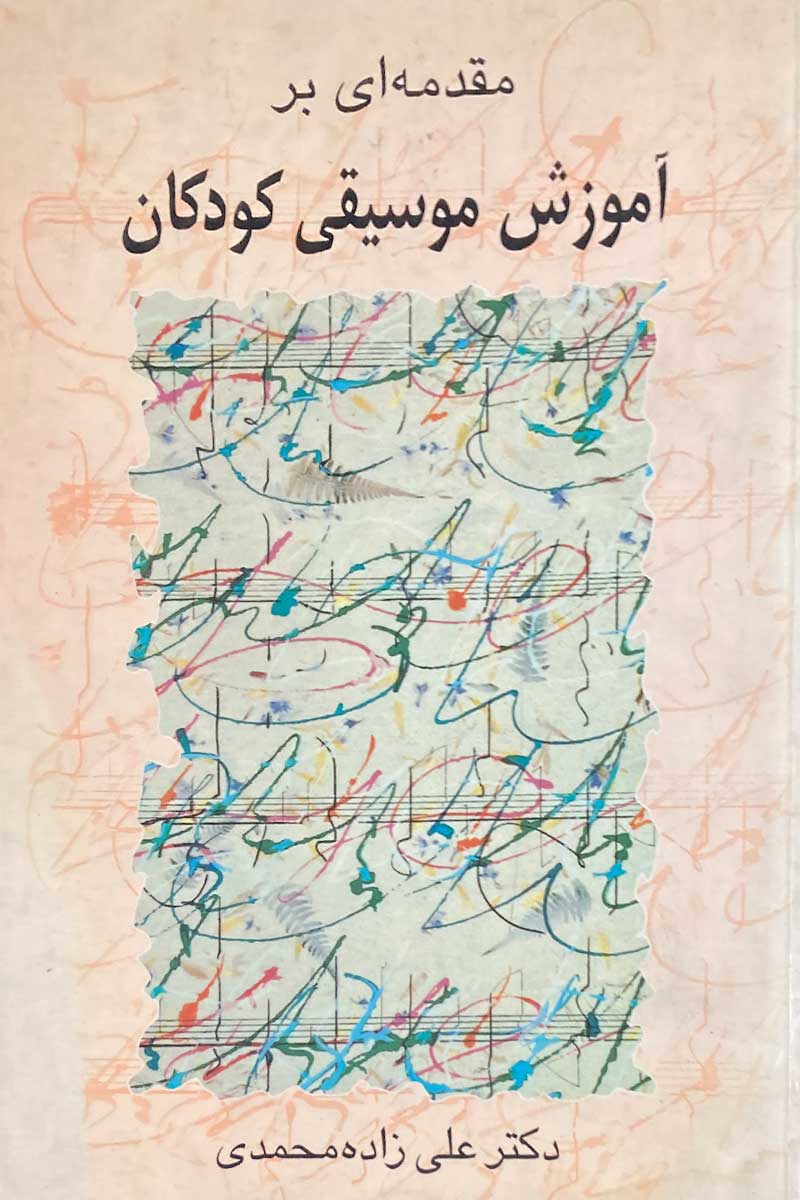 مقدمه‌ای بر
آموزش موسیقی کودکان
دکتر علی زاده‌محمدی